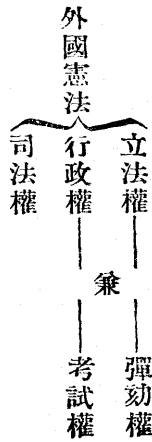 外國憲法
立法權
兼
彈劾權
行政權
考試權
司法權